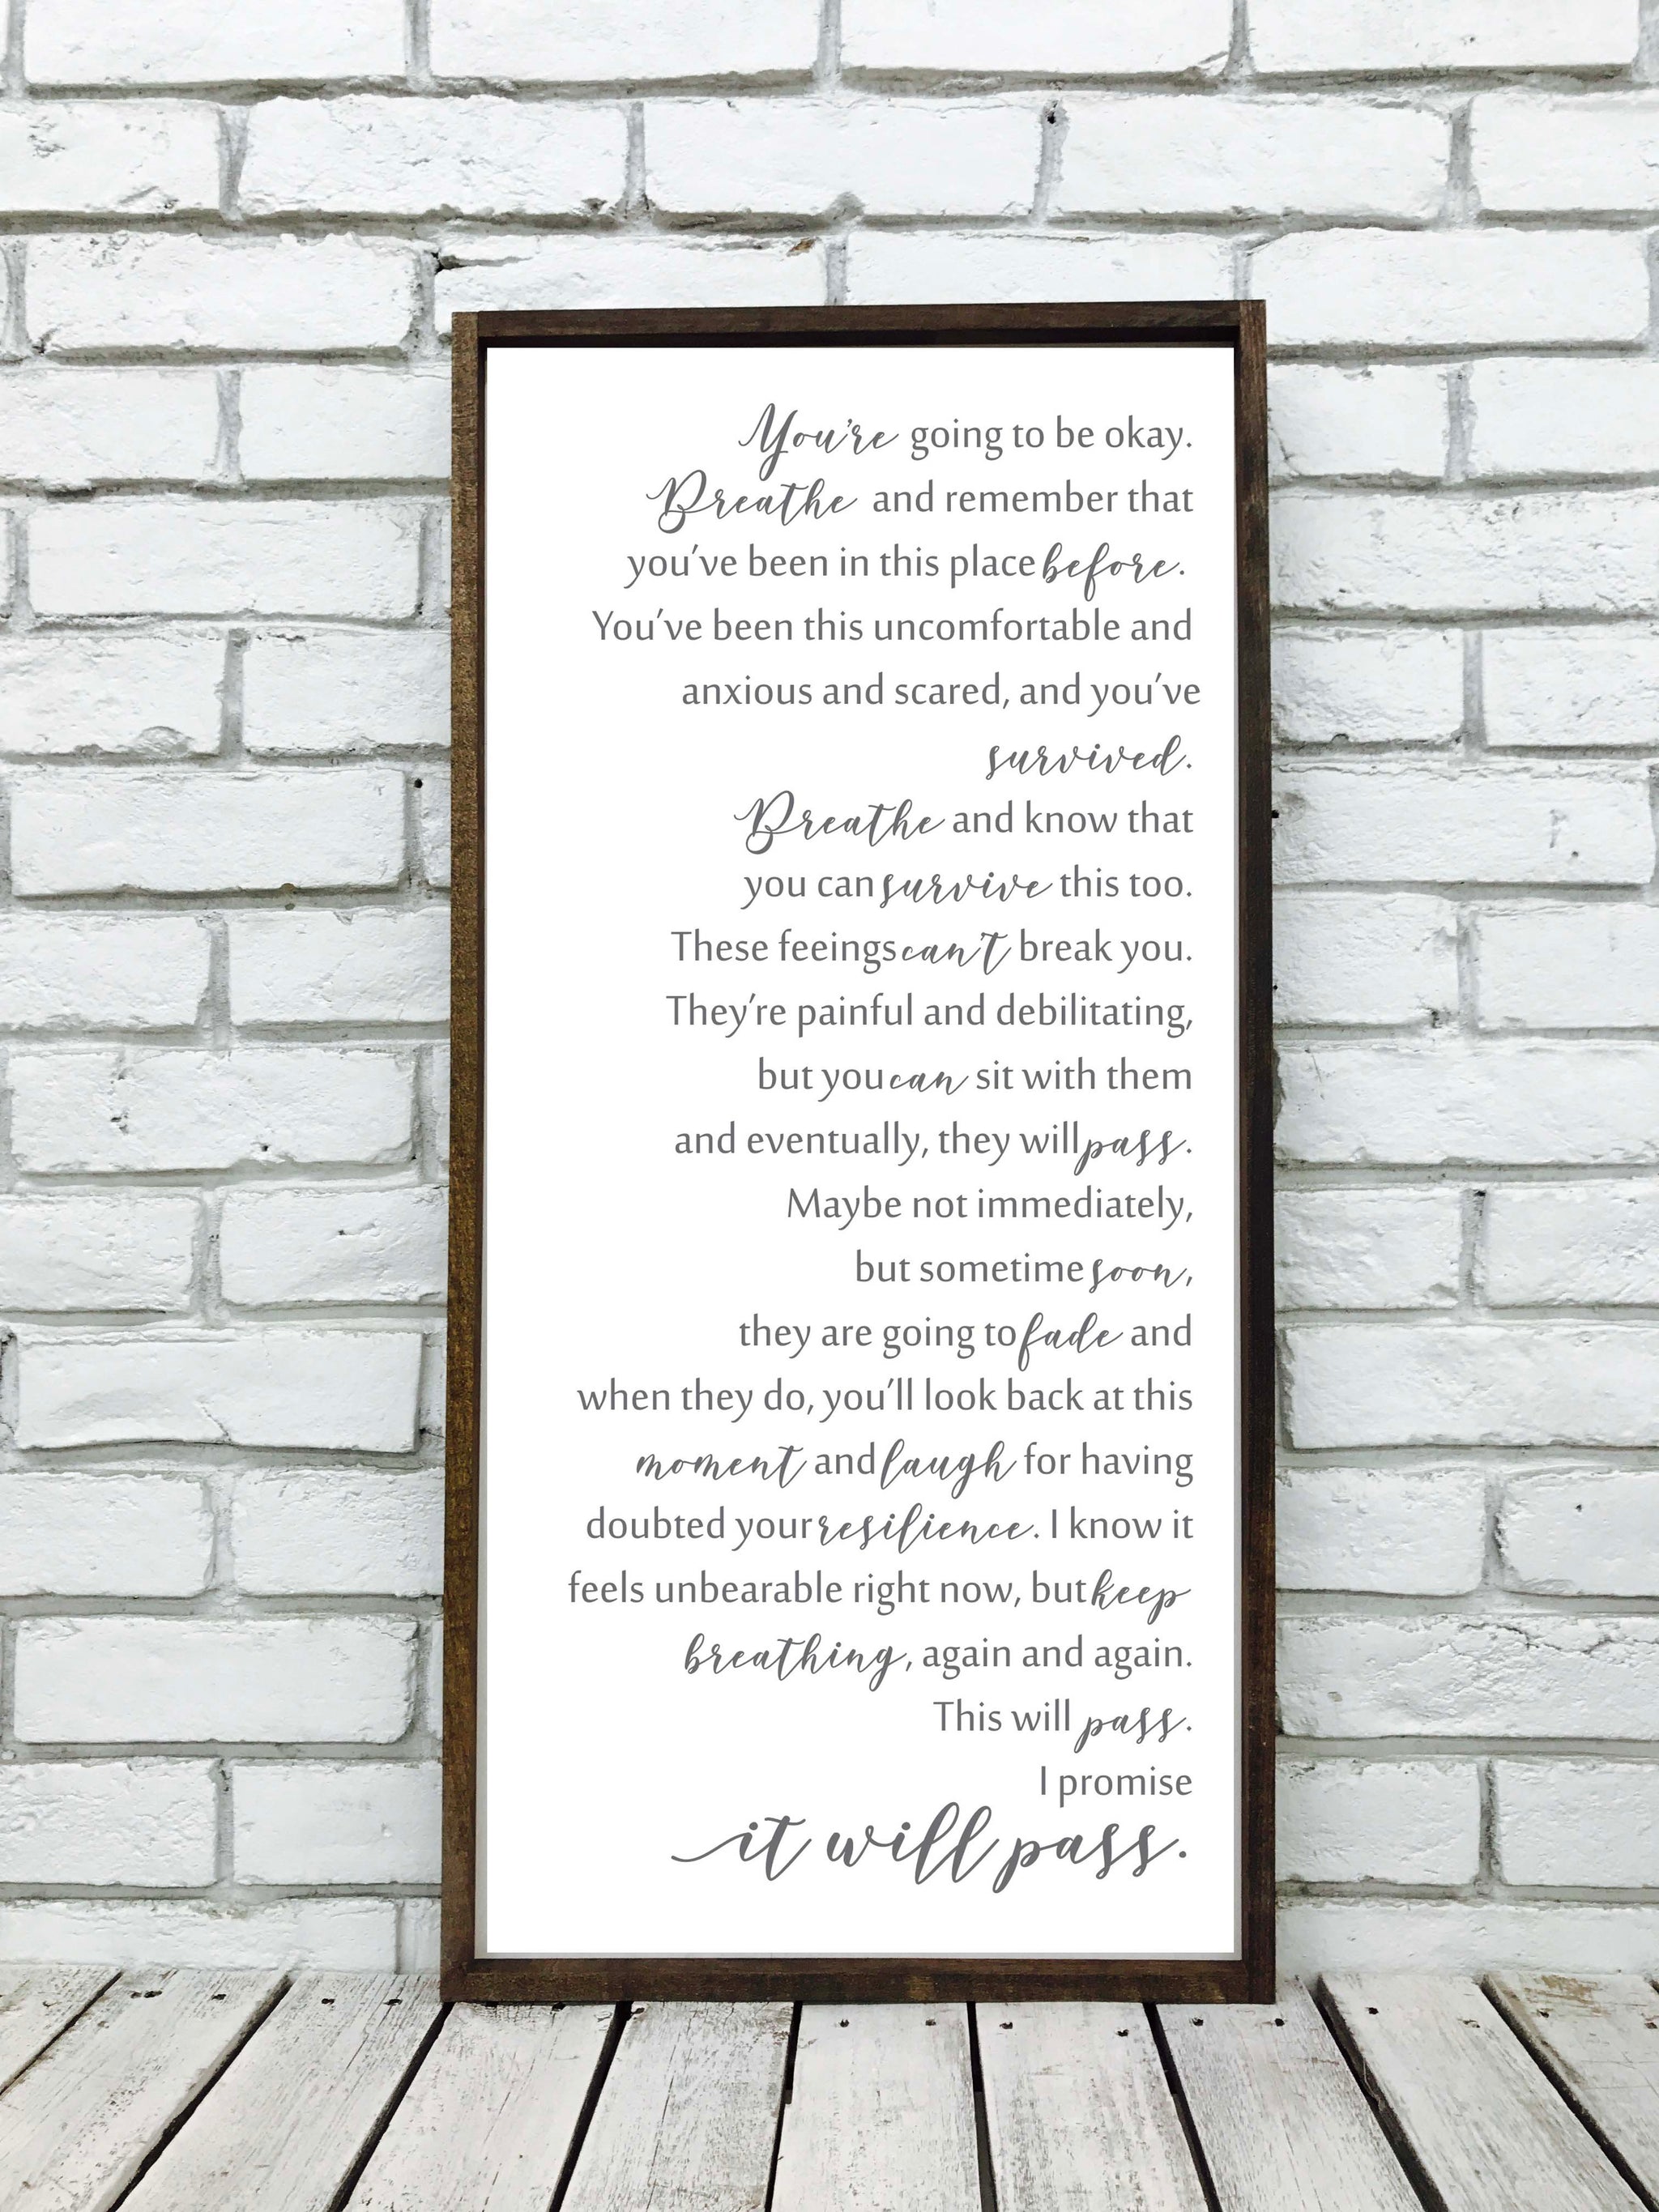 You're going to be okay.
Breathe and remember that
you've been in this place before.
You've been this uncomfortable and
anxious and scared, and you've
survived.
Breathe and know that
you can survive this too.
These feeings can't break you.
They're painful and debilitating,
but you can sit with them
and eventually, they will pass.
Maybe not immediately,
but sometime soon,
they are going to fade and
when they do, you'll look back at this
moment and laugh for having
doubted your resilience. I know it
feels unbearable right now, but keep
breathing, again and again.
This will pass.
I promise
it will pass.